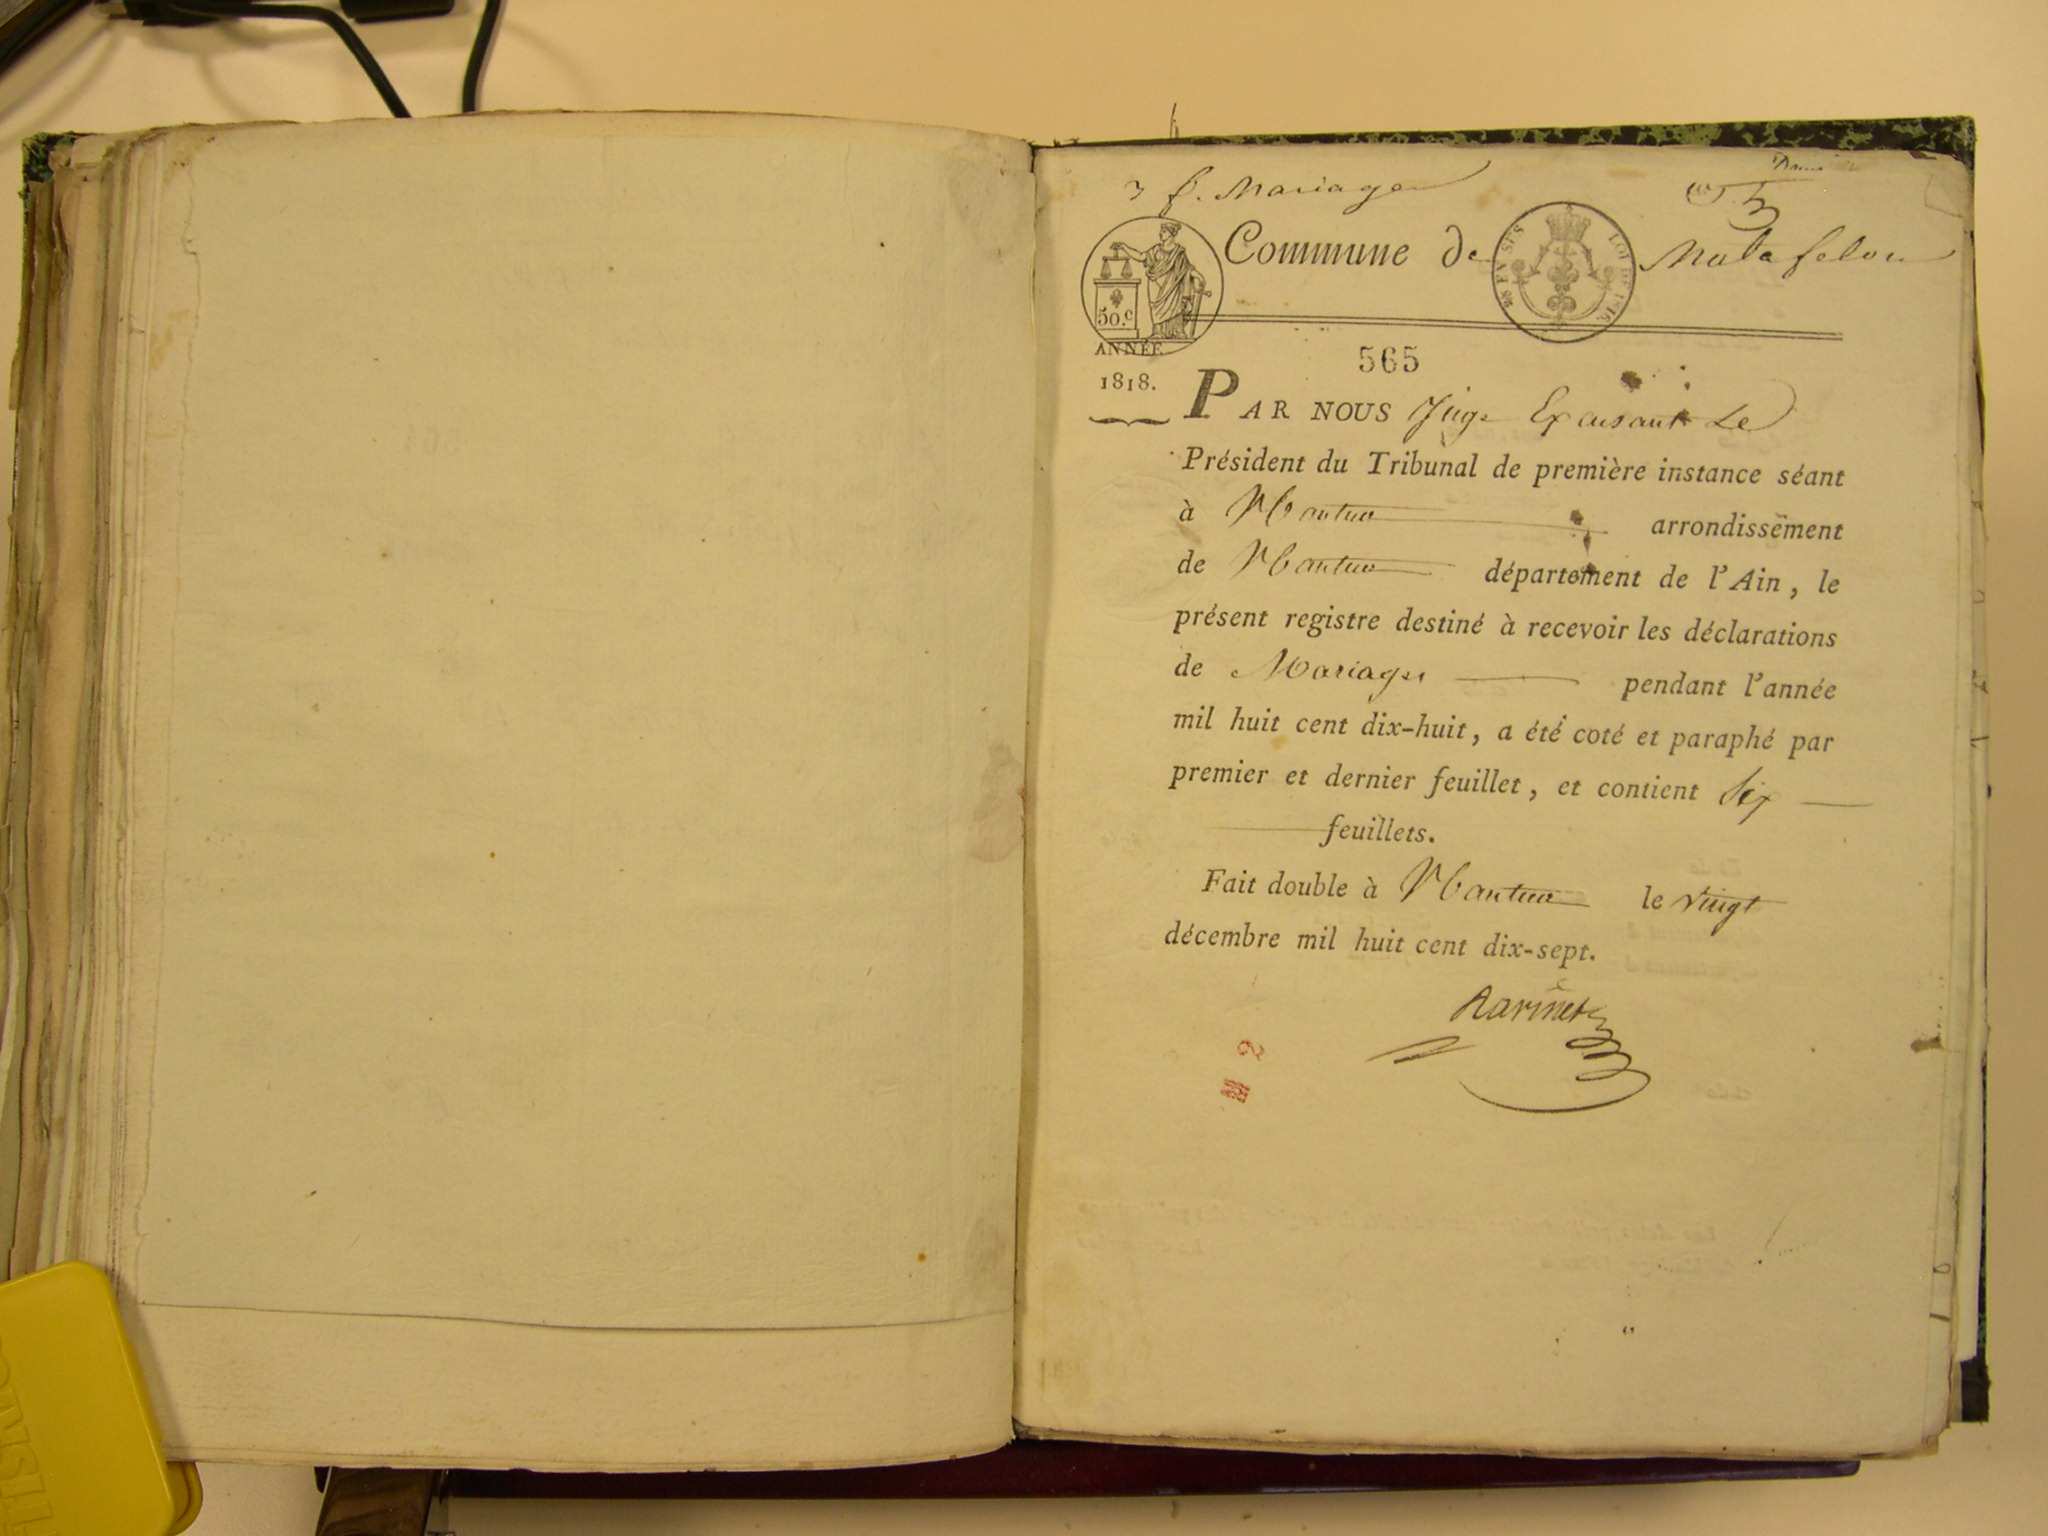 f. Mariages
Commune de Matafelon
50.c
ANNÉE
1818.
565
PAR NOUS Juge Exerçant Le
Président du Tribunal de première instance séant
à Nantua arrondissement
de Nantua département de l'Ain, le
présent registre destiné à recevoir les déclarations
de Mariages pendant l'année
mil huit cent dix-huit, a été coté et paraphé par
premier et dernier feuillet, et contient Six
feuillets.
Fait double à Nantua le vingt
décembre mil huit cent dix-sept.
Ravinet